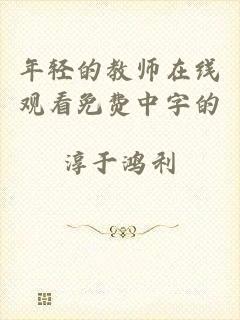 年轻的教师在线
观看免费中字的
淳于鸿利